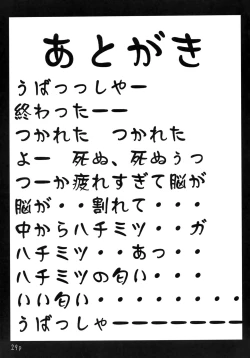 あとがき
うばっっしゃー
終わったーー
つかれた　つかれた
よー　死ぬ、死ぬぅっ
つーか疲れすぎて脳が
脳が・・割れて・・・
中からハチミツ・・ガ
ハチミツ・・あっ・・
ハチミツの匂い・・・
いい匂い・・・・・・・・
うばっしゃーーーーーーー